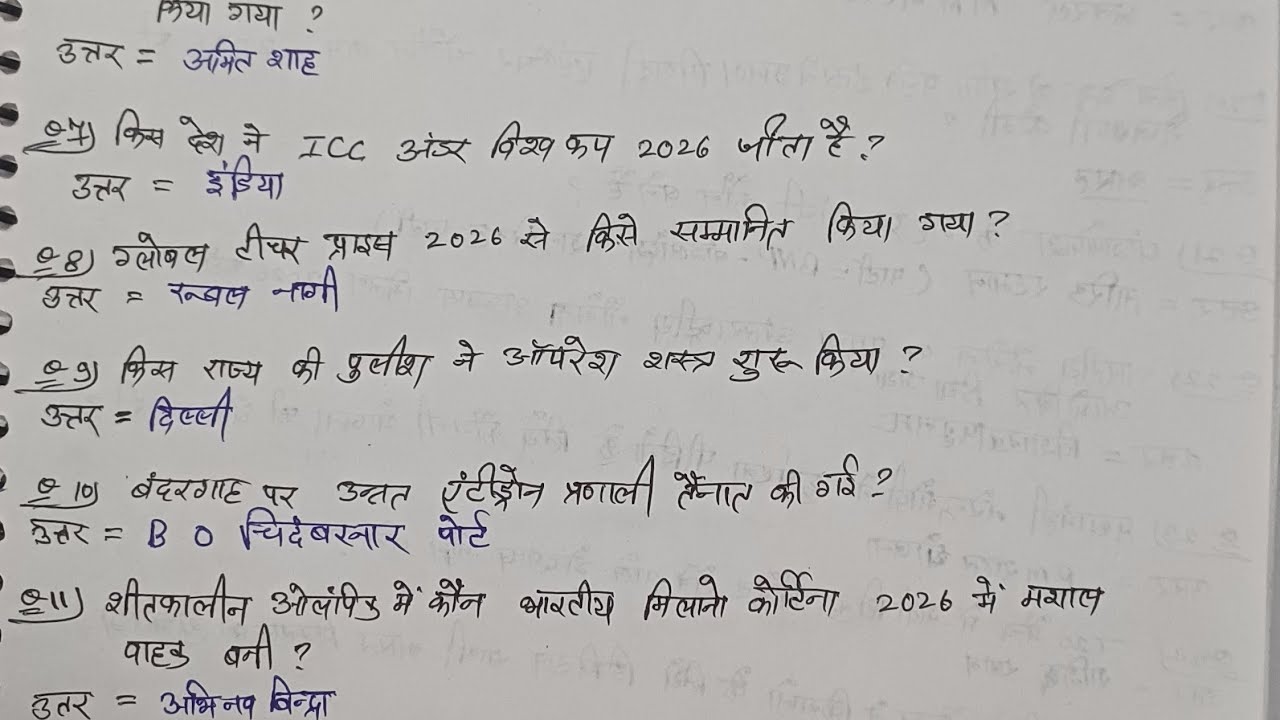 किया गया ?
उत्तर = अमित शाह
Q 7) किस देश ने ICC अंडर विश्व कप 2026 जीता है ?
उत्तर = इंडिया
Q 8) ग्लोबल टीचर प्राइज 2026 से किसे सम्मानित किया गया ?
उत्तर = रूबल नागी
Q 9) किस राज्य की पुलीश ने ऑपरेश शस्त्र शुरू किया ?
उत्तर = दिल्ली
Q 10) बंदरगाह पर उन्नत एंटीड्रोन प्रणाली तैनात की गई ?
उत्तर = B O चिदंबरनार पोर्ट
Q 11) शीतकालीन ओलंपिक में कौन भारतीय मिलानो कोर्टिना 2026 में मशाल
वाहक बनी ?
उत्तर = अभिनव बिन्द्रा